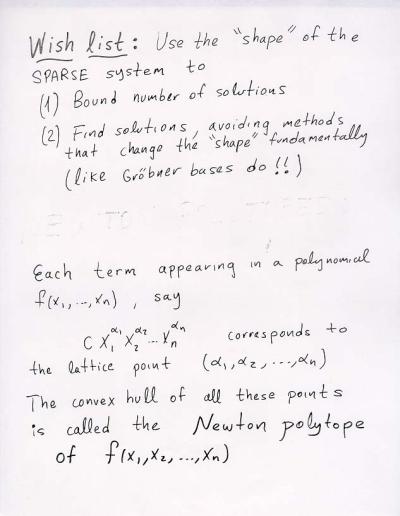 Wish list: Use the "shape" of the
SPARSE system to
(1) Bound number of solutions
(2) Find solutions, avoiding methods
that change the "shape" fundamentally
(like Gröbner bases do!!)
Each term appearing in a polynomial
f(x₁,...,xₙ), say
C X₁^α₁ X₂^α₂ ... Xₙ^αₙ corresponds to
the lattice point (α₁,α₂,...,αₙ)
The convex hull of all these points
is called the Newton polytope
of f(x₁,x₂,...,xₙ)